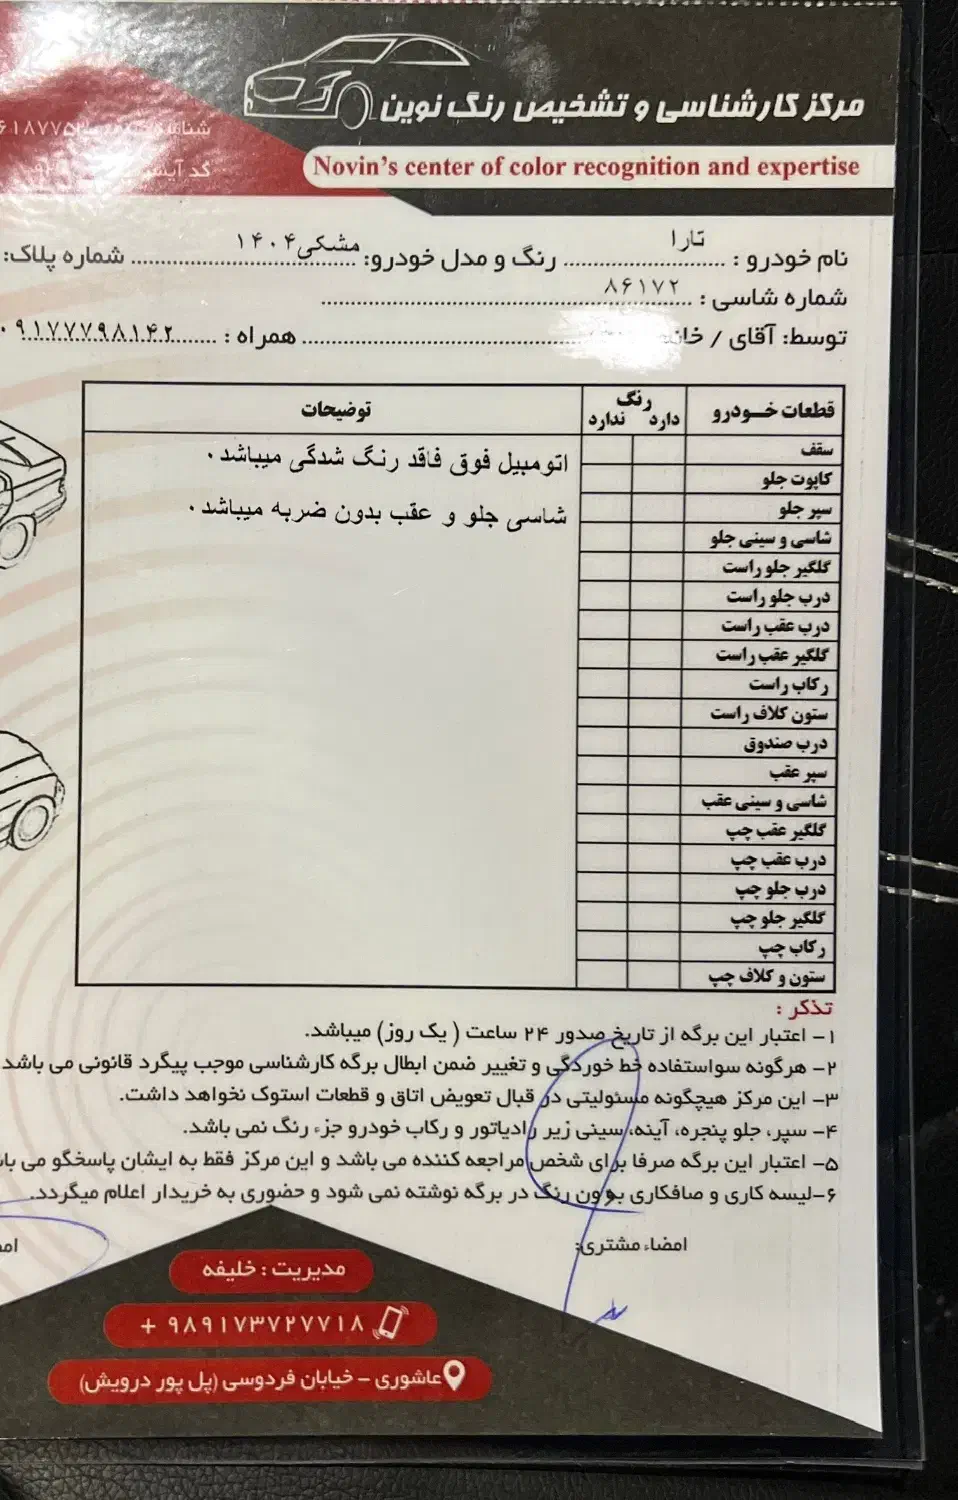 مرکز کارشناسی و تشخیص رنگ نوین
Novin's center of color recognition and expertise
۶۱۸۷۷۵
کد
نام خودرو : تارا رنگ و مدل خودرو: مشکی ۱۴۰۴ شماره پلاک:
شماره شاسی : ۸۶۱۷۲
توسط: آقای / همراه : ۰۹۱۷۷۷۹۸۱۴۲
قطعات خودرو رنگ دارد ندارد توضیحات
سقف
کاپوت جلو
سپر جلو
شاسی و سینی جلو
گلگیر جلو راست
درب جلو راست
درب عقب راست
گلگیر عقب راست
رکاب راست
ستون کلاف راست
درب صندوق
سپر عقب
شاسی و سینی عقب
گلگیر عقب چپ
درب عقب چپ
درب جلو چپ
گلگیر جلو چپ
رکاب چپ
ستون و کلاف چپ
اتومبیل فوق فاقد رنگ شدگی میباشد.
شاسی جلو و عقب بدون ضربه میباشد.
تذکر :
۱- اعتبار این برگه از تاریخ صدور ۲۴ ساعت ( یک روز) میباشد.
۲- هرگونه سواستفاده خط خوردگی و تغییر ضمن ابطال برگه کارشناسی موجب پیگرد قانونی می باشد
۳- این مرکز هیچگونه مسئولیتی در قبال تعویض اتاق و قطعات استوک نخواهد داشت.
۴- سپر، جلو پنجره، آینه، سینی زیر رادیاتور و رکاب خودرو جزء رنگ نمی باشد.
۵- اعتبار این برگه صرفا برای شخص مراجعه کننده می باشد و این مرکز فقط به ایشان پاسخگو می
۶-لیسه کاری و صافکاری بدون رنگ در برگه نوشته نمی شود و حضوری به خریدار اعلام میگردد.
امضاء مشتری:
مدیریت : خلیفه
+ ۹۸۹۱۷۳۷۲۷۷۱۸
عاشوری - خیابان فردوسی (پل پور درویش)